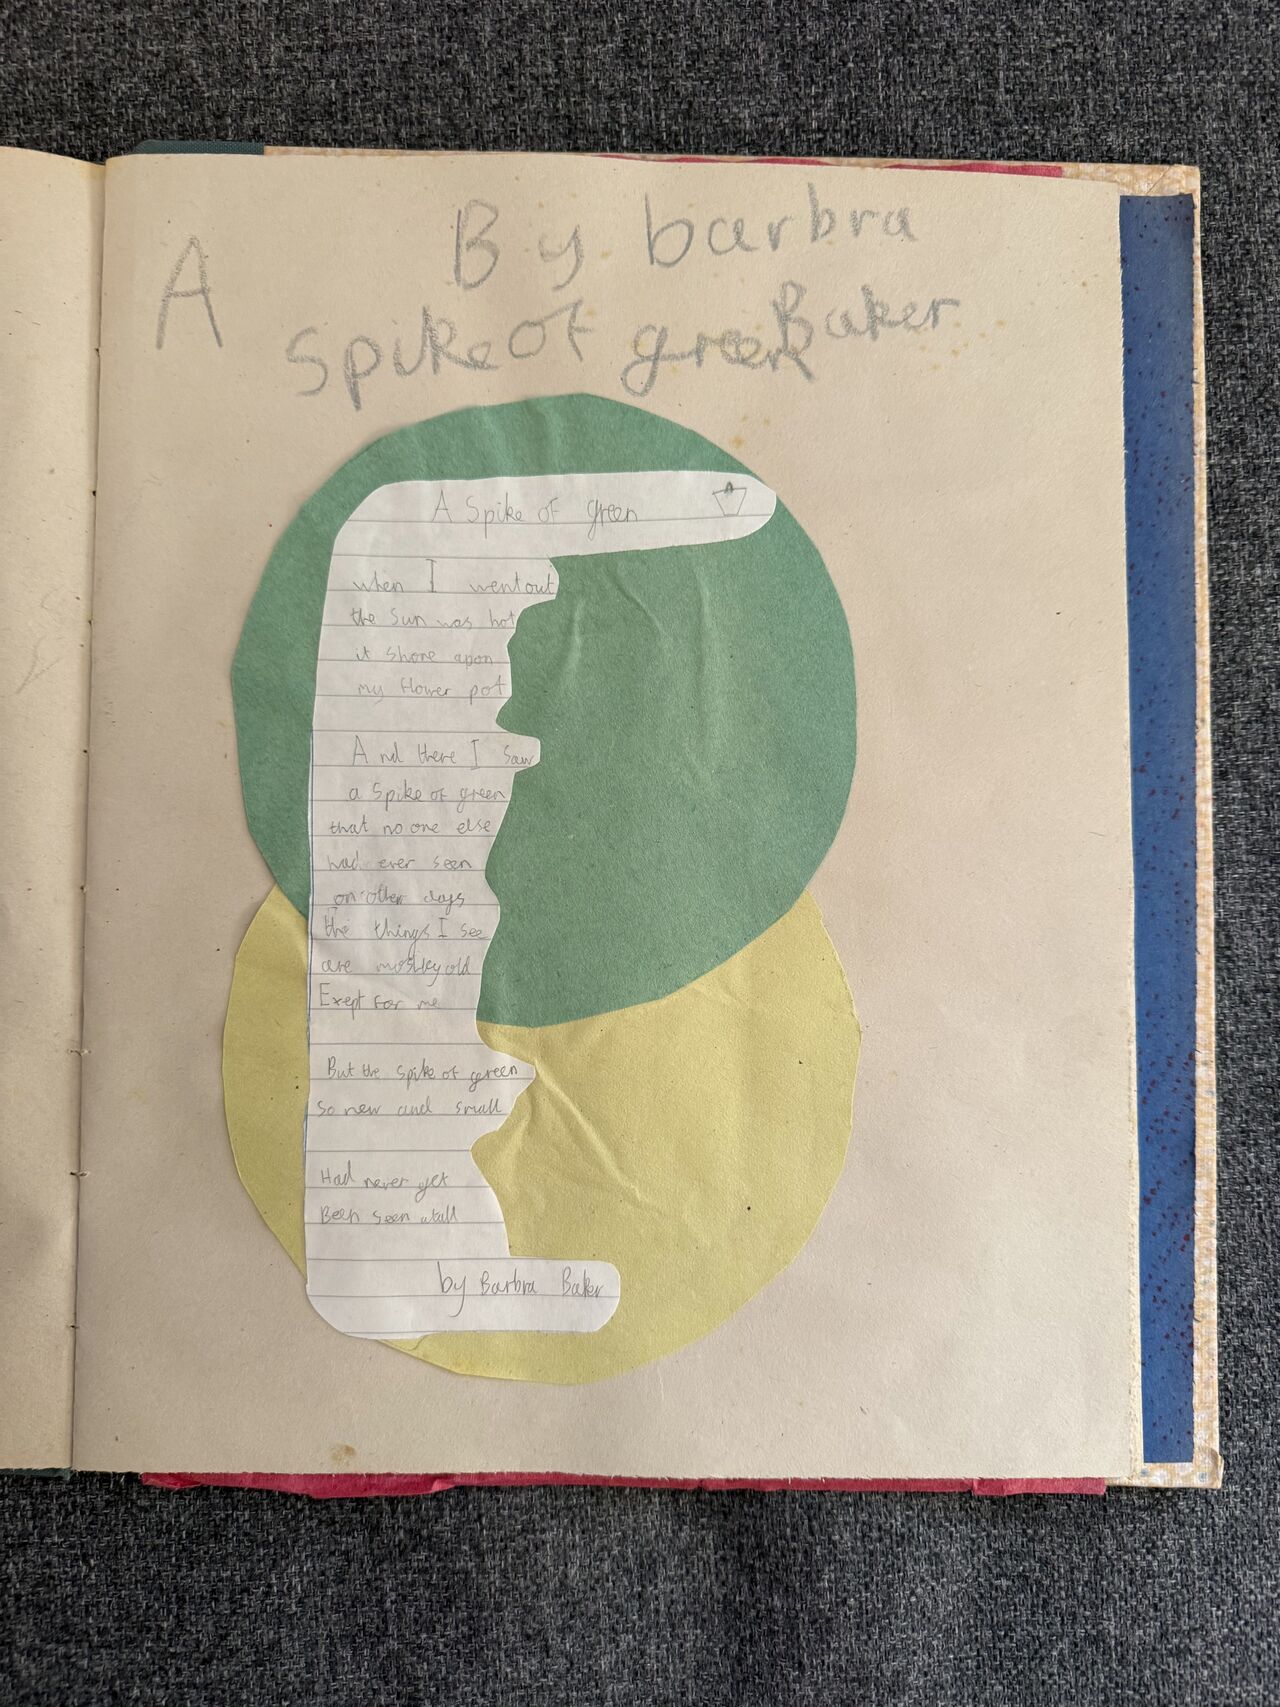 By barbra
Baker
A
Spike of green
A Spike of green
when I went out
the Sun was hot
it Shone apon
my flower pot
And there I Saw
a Spike of green
that no one else
had ever seen
on other days
the things I see
are mostley old
Exept for me
But the Spike of green
So new and small
Had never yet
Been Seen atall
by Barbra Baker